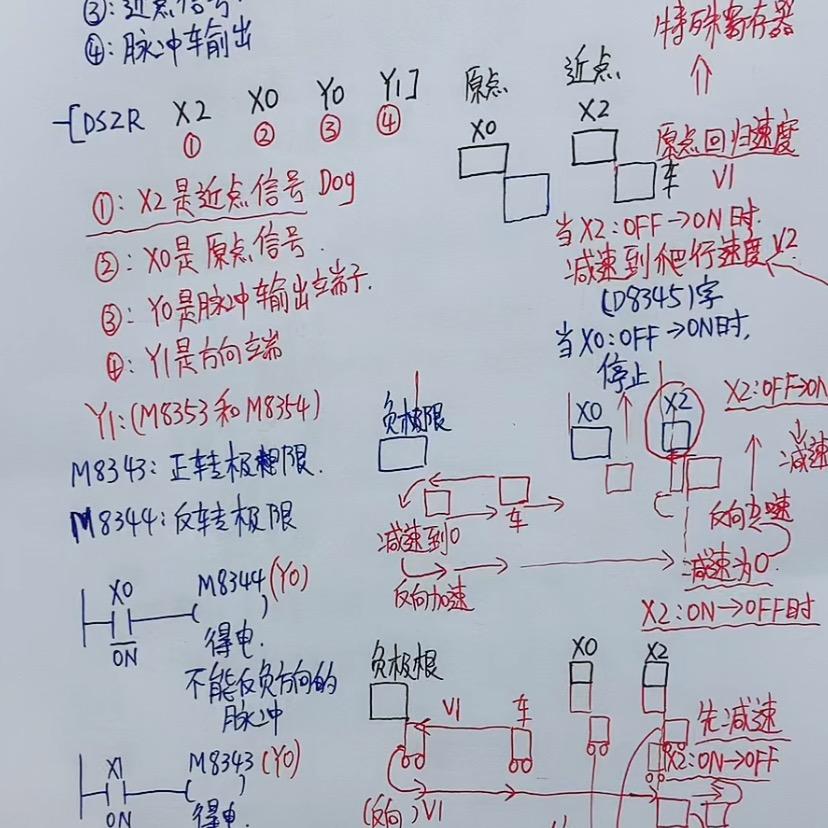 ③: 近点信号
④: 脉冲车输出
[DSZR X2 X0 Y0 Y1]
① ② ③ ④
①: X2是近点信号 Dog
②: X0是原点信号.
③: Y0是脉冲车输出端子.
④: Y1是方向端
Y1: (M8353和M8354)
M8343: 正转极限.
M8344: 反转极限
X0
M8344(Y0)
ON
得电.
不能反负方向的
脉冲
X1
M8343(Y0)
ON
得电.
特殊寄存器
原点 近点
X0 X2
原点回归速度
车 V1
当X2:OFF→ON时.
减速到爬行速度V2
(D8345)字
当X0:OFF→ON时,
停止
X2:OFF→ON
减速
负极限
X0 X2
车
减速到0
反向加速
反向
减速为0.
X2:ON→OFF时
负极根
X0 X2
V1 车
先减速
X2:ON→OFF
(反向)V1